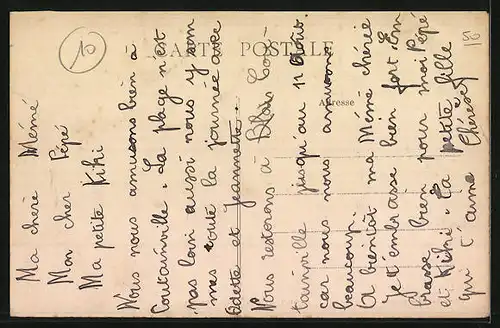 10
CARTE POSTALE
Adresse
18
Ma chère Mémé
Mon cher Pépé
Ma petite Kiki
Nous nous amusons bien à
Coutainville. La plage n'est
pas loin aussi nous y som
mes toute la journée avec
Odette et Jeannette.
Nous resterons à Blais Cou
tainville jusqu'au 11 Août
car nous nous amusons
beaucoup.
A bientôt ma Mémé chérie
Je t'embrasse bien fort. Em
brasse bien pour moi Pépé
et Kiki. Ta petite fille
qui t'aime Thérèse